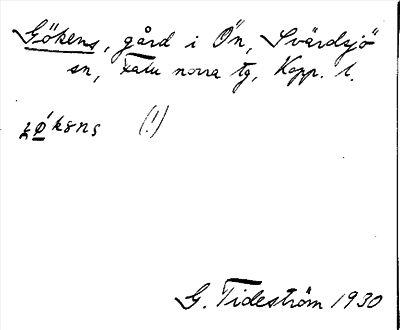 Gökens, gård i Ön, Svärdsjö
sn, Falu norra tg, Kopp. l.
(!)
G. Tideström 1930